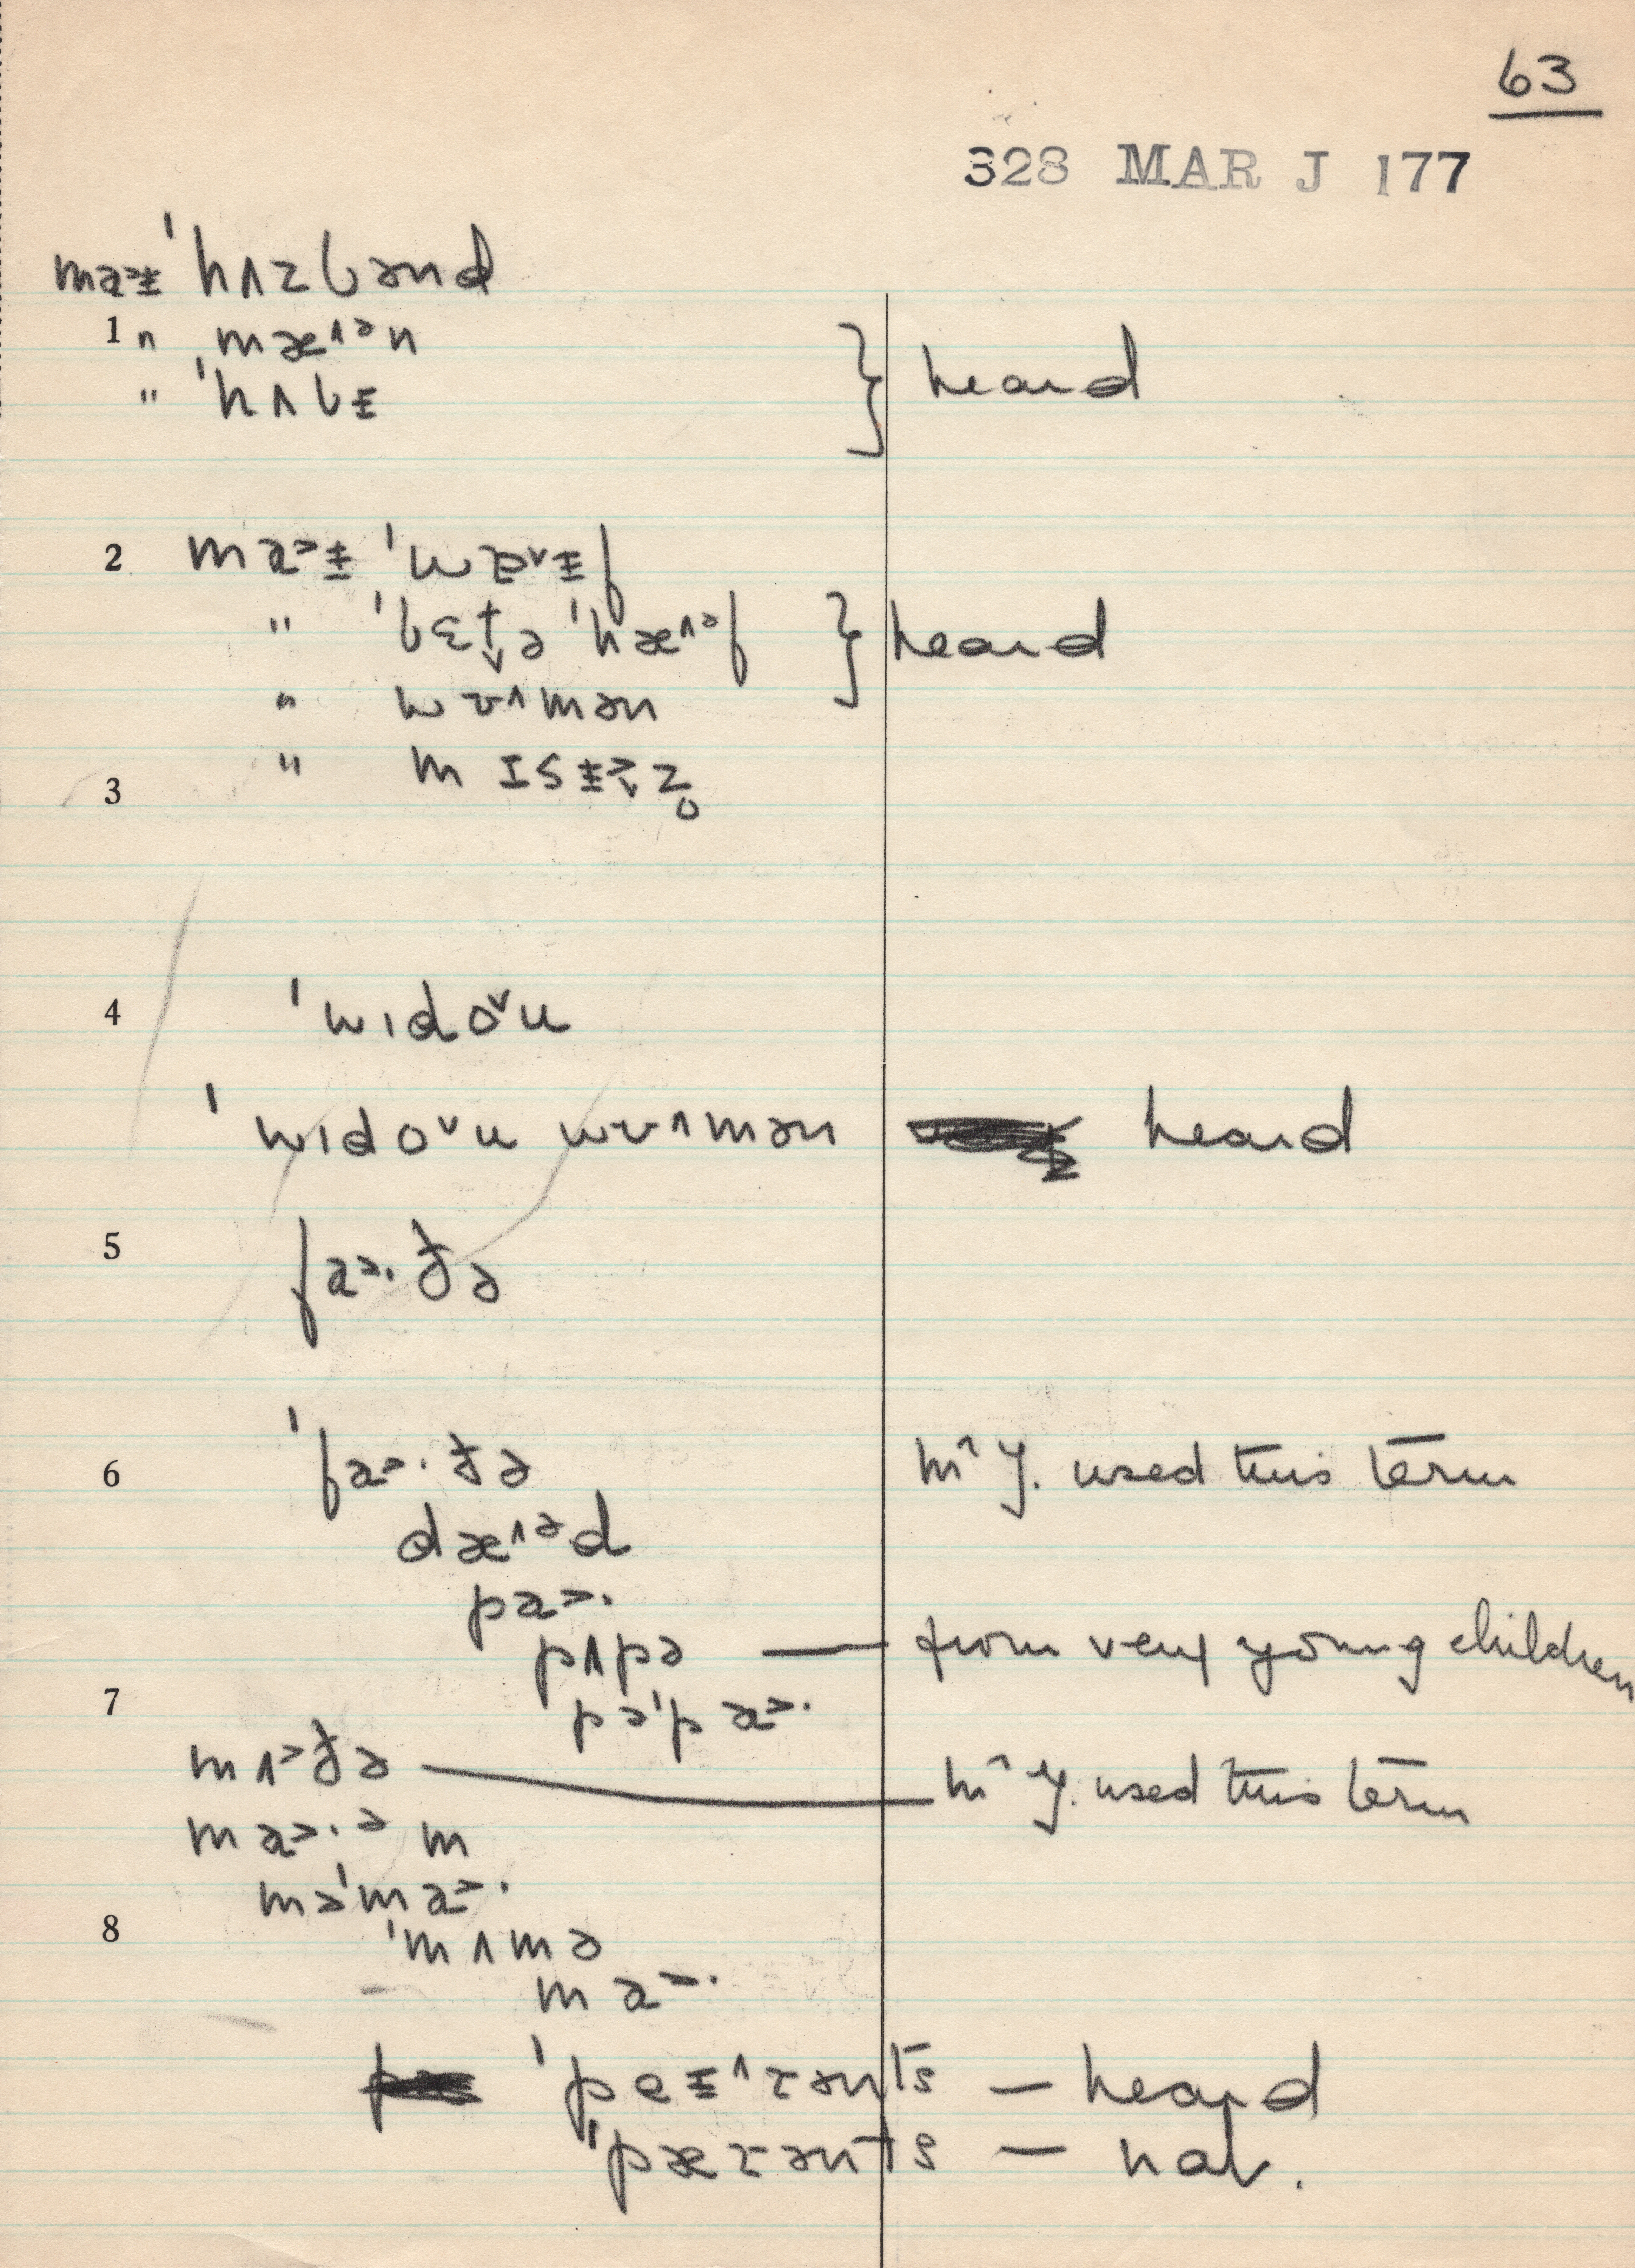 63
328 MAR J 177
ma>ɨ 'hʌzbənd
1 " mæ^ᵊn
" 'hʌbɨ } heard
2 ma>ɨ 'wɐˇɨf
" 'bɛt̬ə 'hæ^ᵊf } heard
" wʊ^mən
3 " mɪsɨ>z̥
4 'wɪdoˇu
'wɪdoˇu wʊ^mən heard
5 fa>·ðə
6 'fa>·ðə mʳ J. used this term
dæ^ᵊd
pa>·
pʌpə — from very young children
7 pə'pa>·
mʌ>ðə — mʳ J. used this term
ma>·ᵊm
mə'ma>·
8 'mʌmə
ma>·
'peɨ^rənts — heard
"pærənts — nat.